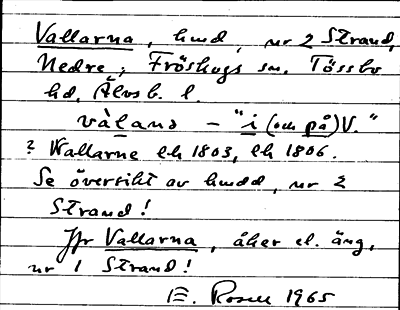 Vallarna, hmd, nr 2 Strand,
Nedre; Fröskogs sn. Tössbo
hd, Älvsb. l.
vàlana – "i (och på) V."
? Wallarne lk 1803, lk 1806.
Se översikt av hmdd, nr 2
Strand!
Jfr Vallarna, åker el. äng,
nr 1 Strand!
E. Rosell 1965